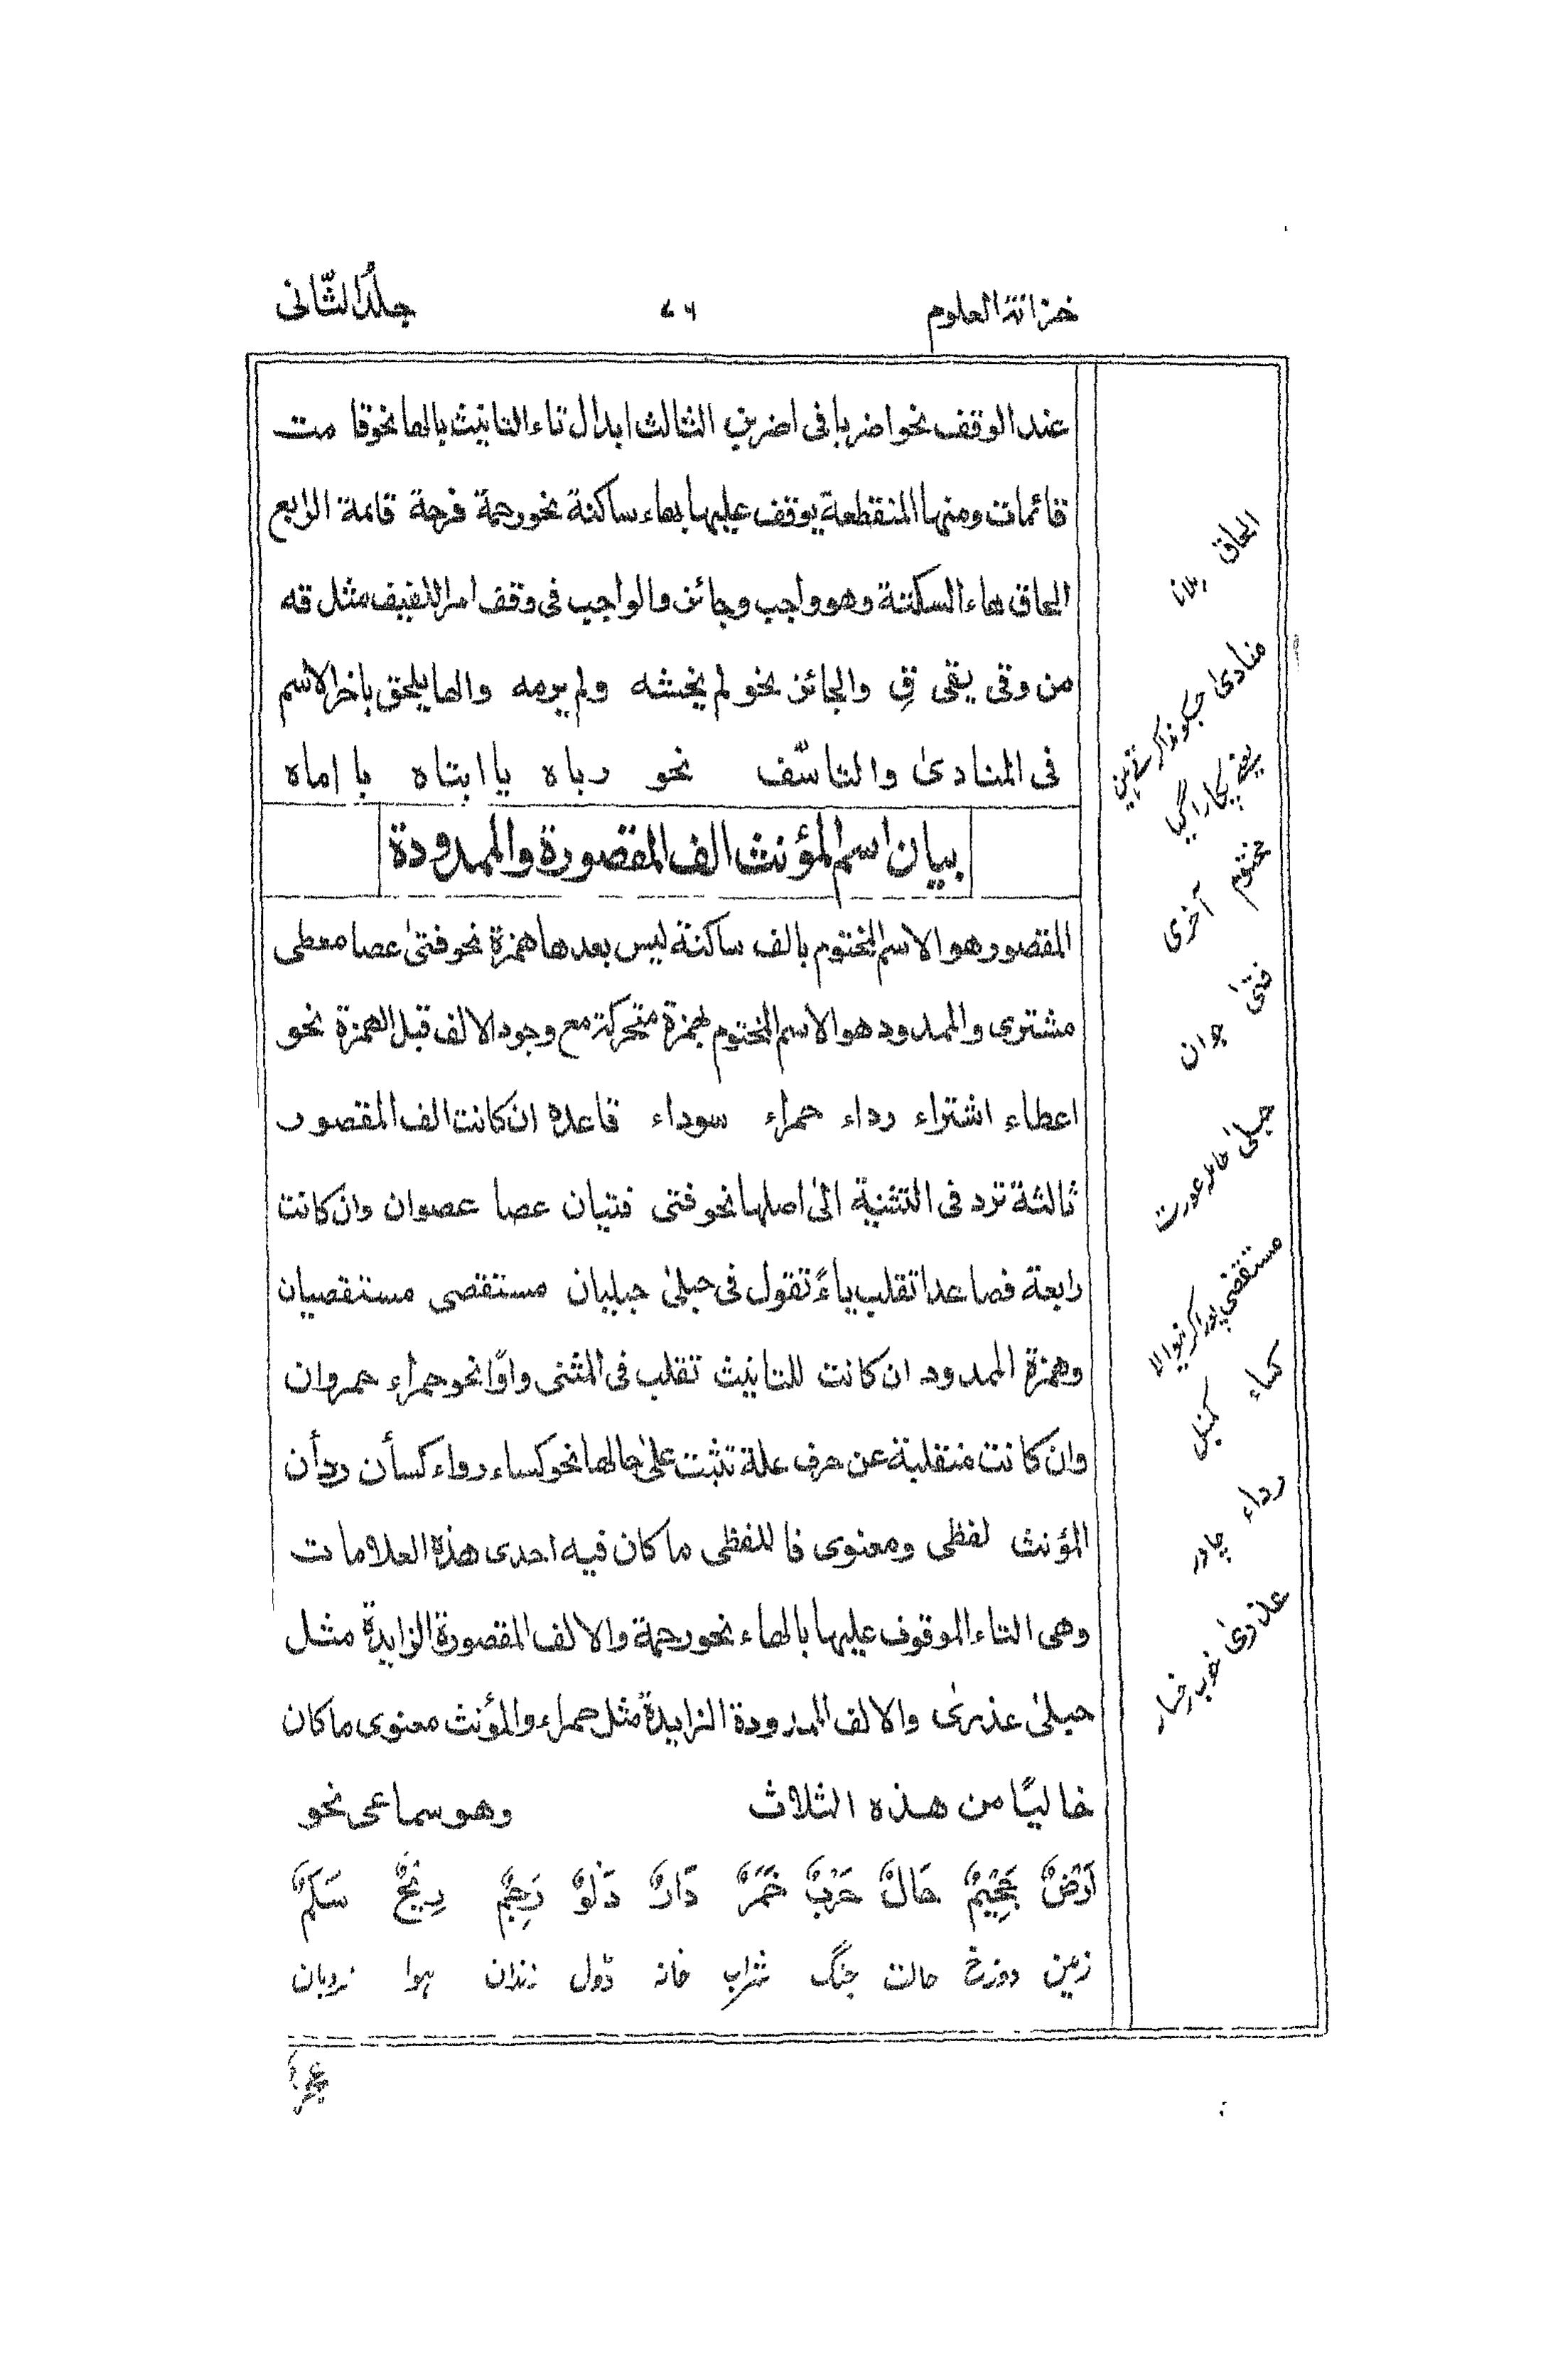 خزانة العلوم ۷۶ جلدُ الثّانی
عند الوقف نحو اضربا فی اضربن الثالث ابدال تاء التانیث بالها نحو قا مت
قائمات ومنها المنقطعة یوقف علیها بهاء ساکنة نحو رحمة فرجة قائمة الرابع
الحاق هاء السکتنة وهو واجب وجائز والواجب فی وقف امر اللفیف مثل قه
من وقی یقی قِ والجائز نحو لم یخشه ولم یرمه والها یلحق باخر الاسم
فی المنادیٰ والتاسّف نحو رباه یا ابتاه یا اماه
بیان اسم المؤنث الف المقصورة والممدودة
المقصور هو الاسم المختوم بالف ساکنة لیس بعدها همزة نحو فتیٰ عصا معطی
مشتری والممدود هو الاسم المختوم بهمزة متحرکة مع وجود الالف قبل الهمزة نحو
اعطاء اشتراء رداء حمراء سوداء قاعدة ان کانت الف المقصور
ثالثة ترد فی التثنیة الیٰ اصلها نحو فتی فتیان عصا عصوان وان کانت
رابعة فصاعدا تقلب یاءً تقول فی حبلیٰ حبلیان مستقصی مستقصیان
وهمزة الممدود ان کانت للتانیث تقلب فی المثنی واوًا نحو حمراء حمروان
وان کانت منقلبة عن حرف علة تثبت علیٰ حالها نحو کساء رواء کسأن ردأن
المؤنث لفظی ومعنوی فا للفظی ما کان فیه احدی هذه العلاما ت
وهی التاء الموقوف علیها بالهاء نحو رحمة والالف المقصورة الزایدة مثل
حبلیٰ عذریٰ والالف الممدودة الزایدة مثل حمراء والمؤنث معنوی ما کان
خالیًا من هذه الثلاث وهو سماعی نحو
اَرْضٌ جَحِیْمٌ حَالٌ حَرْبٌ خَمْرٌ دَارٌ دَلْوٌ رِیْحٌ سَلَمٌ
زمین دوزخ حالت جنگ شراب خانہ ڈول زندان ہوا نردبان
الحاق ملانا
منادیٰ جسکو ندا کرتے ہین
یعنے پکارا گیا
مختوم آخری
فتیٰ جوان
حبلیٰ حاملہ عورت
مستقضی پورا کرنیوالا
کساء کمبل
رداء چادر
عذریٰ خوب رخسار